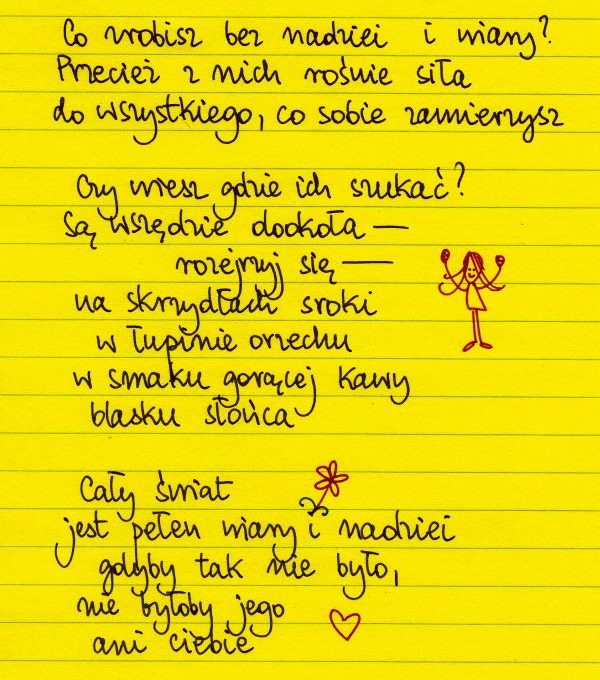 Co zrobisz bez nadziei i wiary?
Przecież z nich rośnie siła
do wszystkiego, co sobie zamierzysz
Czy wiesz gdzie ich szukać?
Są wszędzie dookoła —
rozejrzyj się —
na skrzydłach sroki
w łupinie orzechu
w smaku gorącej kawy
blasku słońca
Cały świat
jest pełen wiary i nadziei
gdyby tak nie było,
nie byłoby jego
ani ciebie